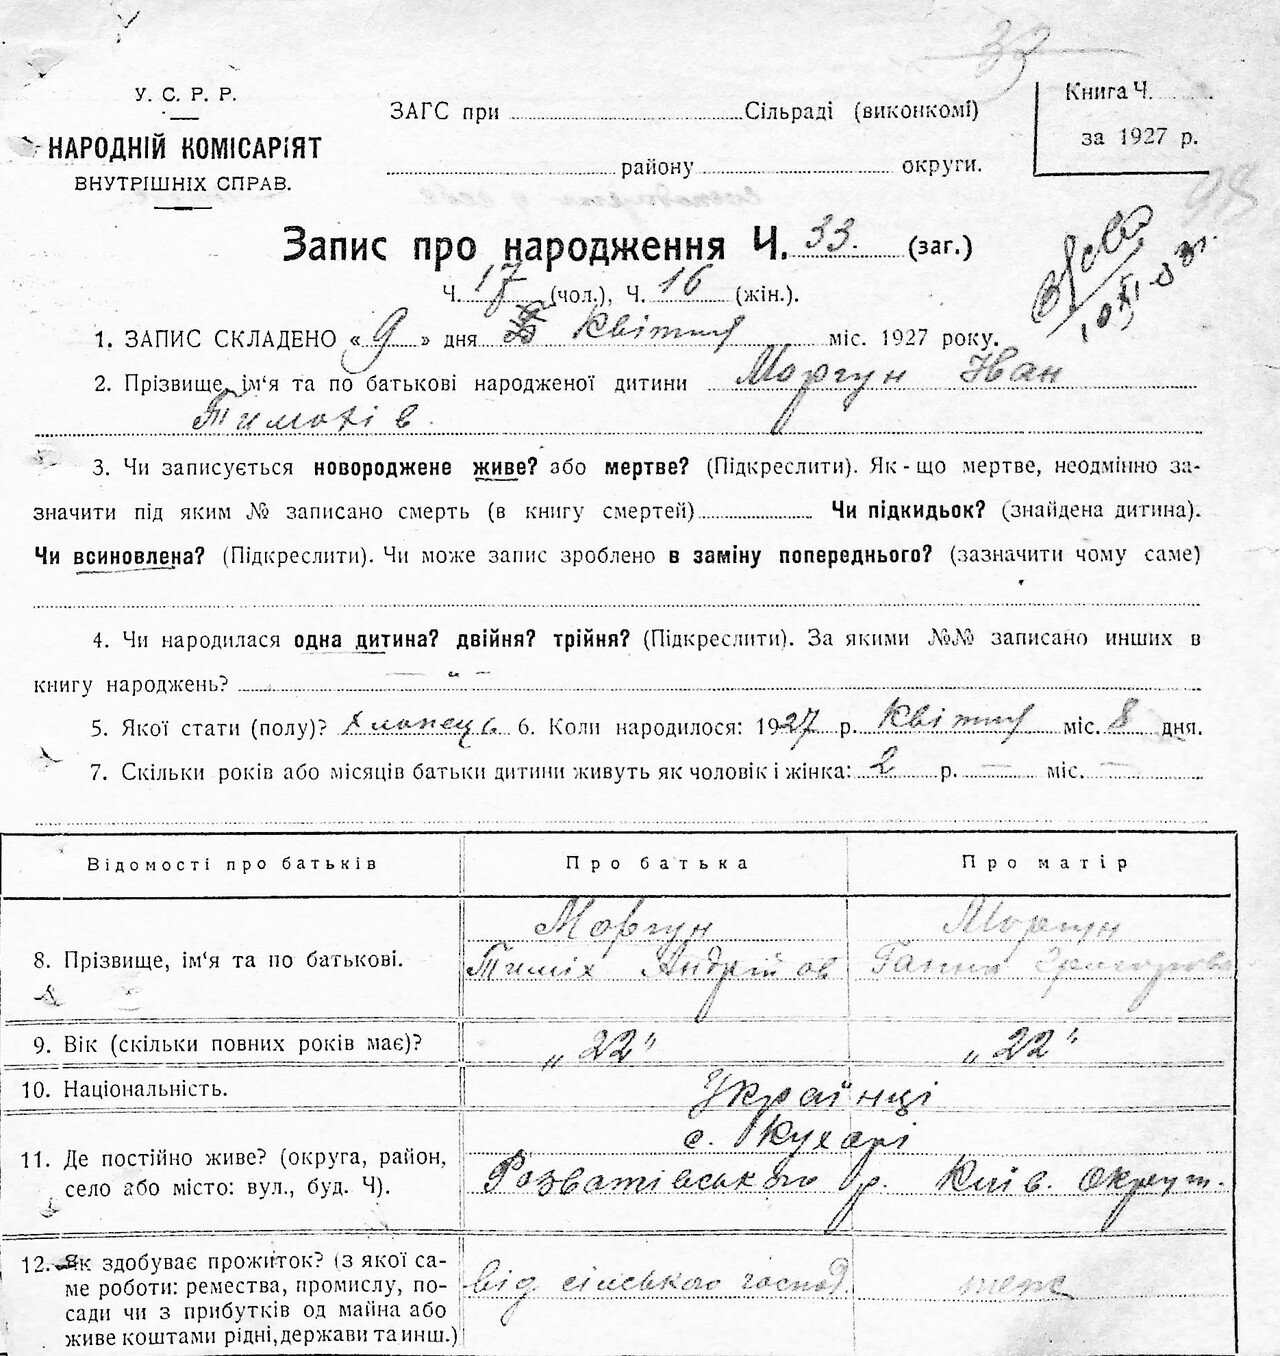 33
У. С. Р. Р.
НАРОДНІЙ КОМІСАРІЯТ
ВНУТРІШНІХ СПРАВ.
ЗАГС при Сільраді (виконкомі)
району округи.
Книга Ч.
за 1927 р.
98
Запис про народження Ч. 33. (заг.)
Ч. 17 (чол.), Ч. 16 (жін.).
1. ЗАПИС СКЛАДЕНО « 9 » дня Квітня міс. 1927 року.
2. Прізвище, ім'я та по батькові народженої дитини Моргун Іван
Тимохів
3. Чи записується новороджене живе? або мертве? (Підкреслити). Як-що мертве, неодмінно за-
значити під яким № записано смерть (в книгу смертей) Чи підкидьок? (знайдена дитина).
Чи всиновлена? (Підкреслити). Чи може запис зроблено в заміну попереднього? (зазначити чому саме)
4. Чи народилася одна дитина? двійня? трійня? (Підкреслити). За якими №№ записано инших в
книгу народжень? — " —
5. Якої стати (полу)? Хлопець 6. Коли народилося: 1927 р. Квітня міс. 8 дня.
7. Скільки років або місяців батьки дитини живуть як чоловік і жінка: 2 р. — міс. —
Відомості про батьків Про батька Про матір
Моргун Моргун
8. Прізвище, ім'я та по батькові. Тиміх Андрійов Ганна Григорова
9. Вік (скільки повних років має)? „22“ „22“
10. Національність. Українці
с. Кухарі
11. Де постійно живе? (округа, район,
село або місто: вул., буд. Ч). Розватівського р. Київ. Округ.
12. Як здобуває прожиток? (з якої са-
ме роботи: ремества, промислу, по- від сільського господ. теж
сади чи з прибутків од майна або
живе коштами рідні, держави та инш.)